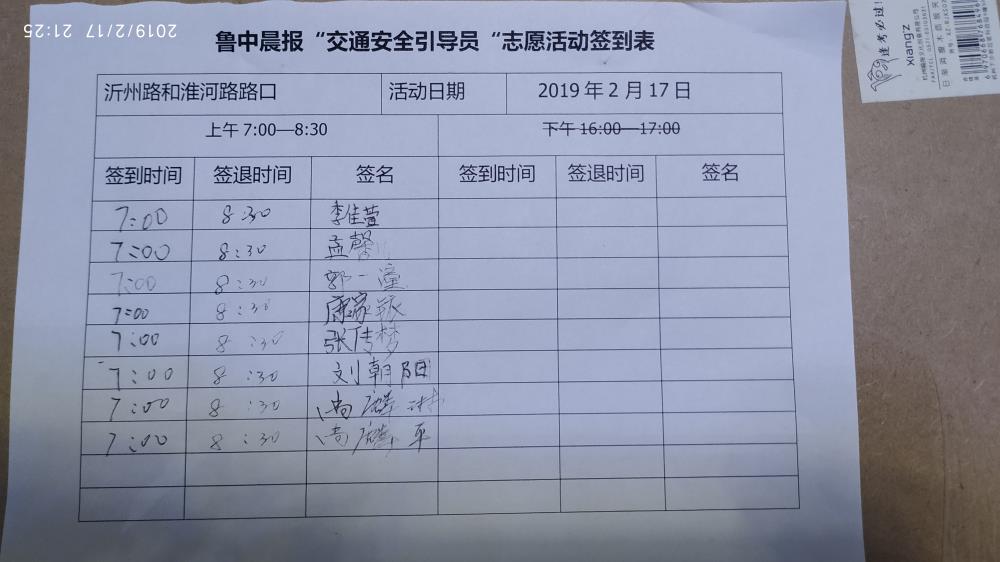 2019/2/17 21:25
鲁中晨报“交通安全引导员“志愿活动签到表
沂州路和淮河路路口 活动日期 2019 年 2 月 17 日
上午 7:00—8:30 下午 16:00—17:00
签到时间 签退时间 签名 签到时间 签退时间 签名
7:00 8:30 李佳萱
7:00 8:30 孟馨
7:00 8:30 郭一潼
7:00 8:30 康家
7:00 8:30 张传梦
7:00 8:30 刘朝阳
7:00 8:30 尚麟
7:00 8:30 尚麟平
逢考必过!
xiang'z